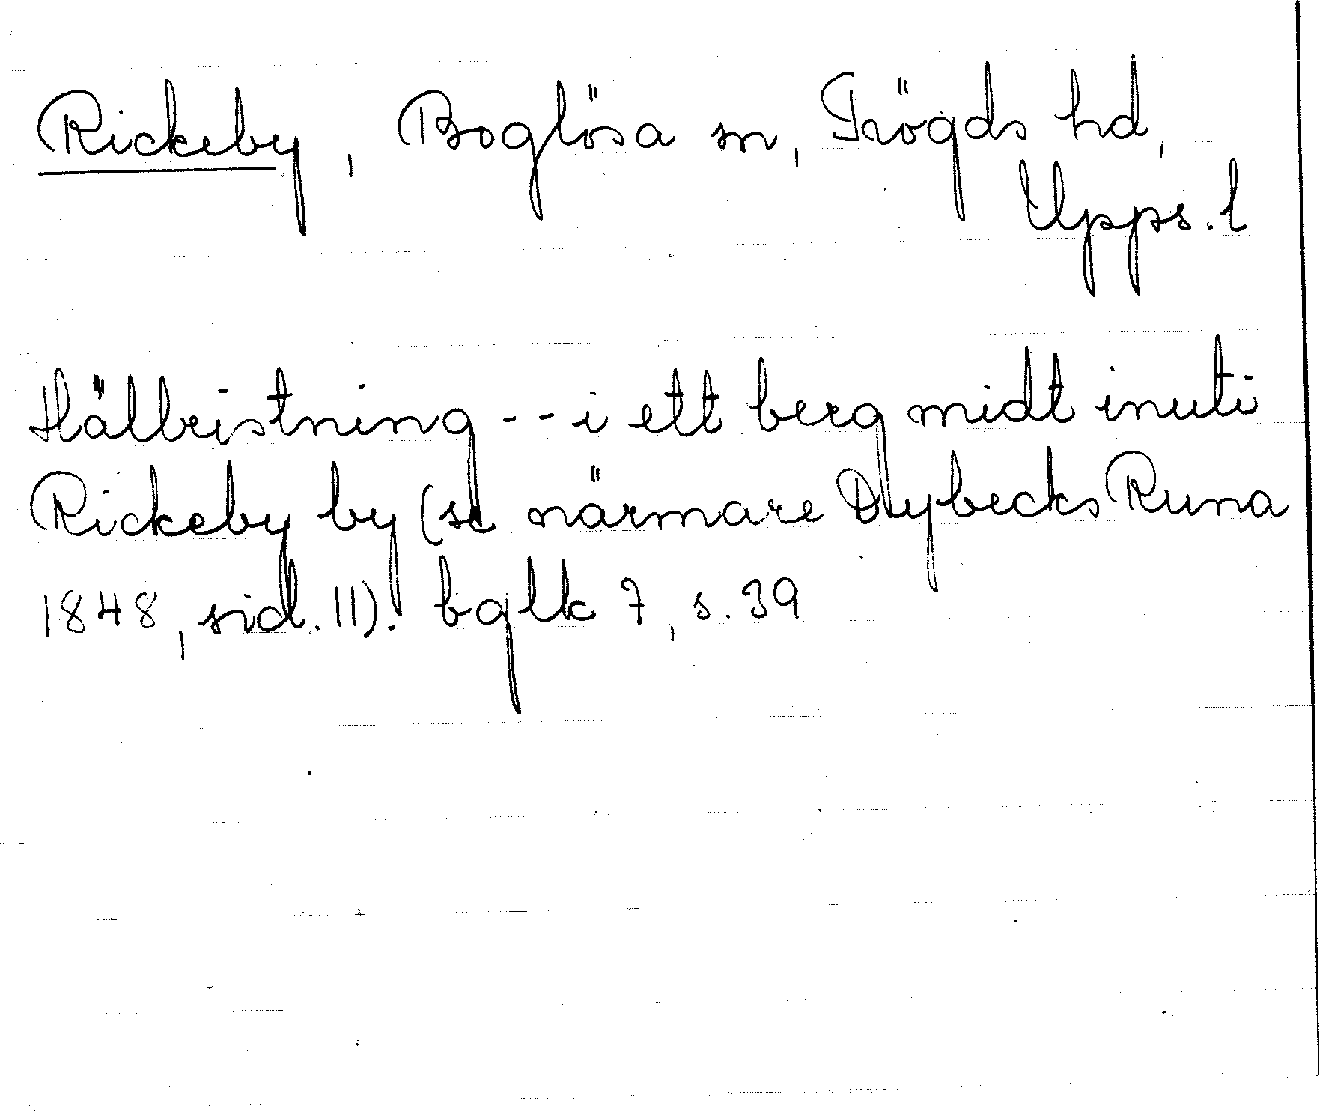 Rickeby, Boglösa sn, Trögds hd,
Upps. l
Hällristning -- i ett berg midt inuti
Rickeby by (se närmare Dybecks Runa
1848, sid. 11). bqlk 7, s. 39